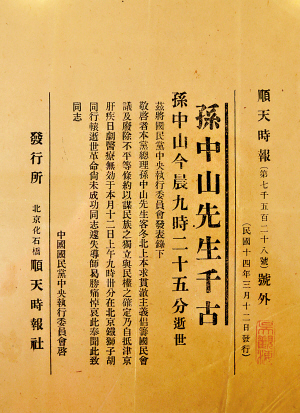 順天時報（第七千五百二十八號）號外
（民國十四年三月十二日發行）
孫中山先生千古
孫中山今晨九時二十五分逝世
茲將國民黨中央執行委員會發表錄下
敬啓者本黨總理孫中山先生客冬北上本求貫澈主義倡籌國民會
議及廢除不平等條約以謀民族之獨立與民權之確定乃自抵津京
肝疾日劇醫療無効于本月十二日上午九時卅分在北京鐵獅子胡
同行轅逝世革命尙未成功同志遽失導師曷勝痛悼哀此奉聞此致
同志
中國國民黨中央執行委員會啓
發行所 北京化石橋 順天時報社